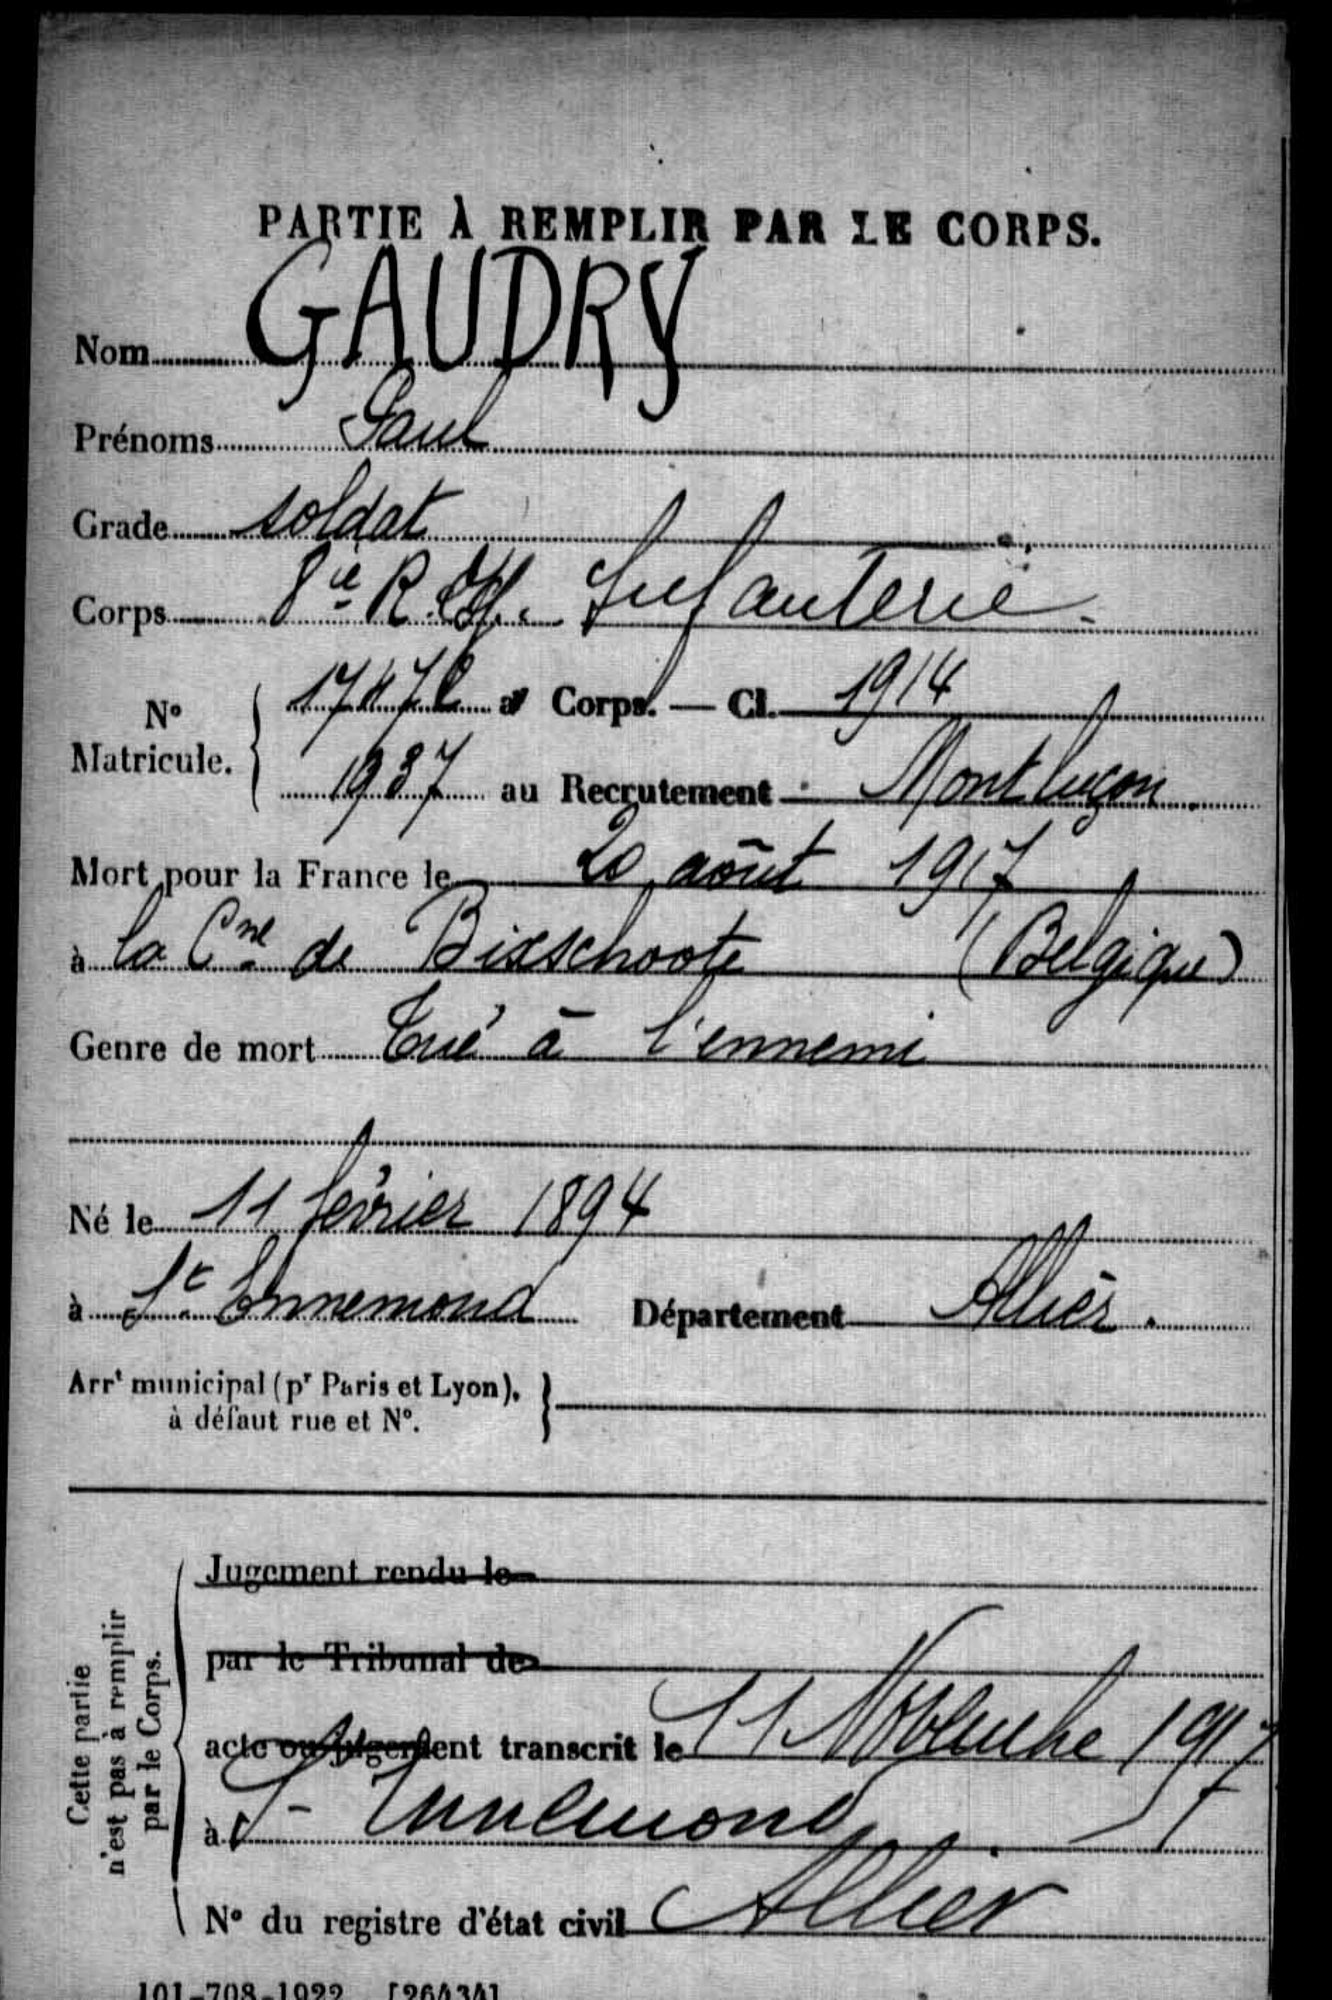 PARTIE À REMPLIR PAR LE CORPS.
Nom GAUDRY
Prénoms Paul
Grade soldat
Corps 8ie R. Infanterie.
N° Matricule. 
au Corps. — Cl. 1914
1937 au Recrutement Montluçon
Mort pour la France le 20 août 1917
à la Cne de Bixschoote (Belgique)
Genre de mort Tué à l'ennemi
Né le 11 février 1894
à St Ennemond Département Allier.
Arrt municipal (pr Paris et Lyon),
à défaut rue et N°.
Cette partie
n'est pas à remplir
par le Corps.
Jugement rendu le
par le Tribunal de
acte ou jugement transcrit le 11 Novembre 1917
à St Ennemond
N° du registre d'état civil Allier
101-708-1922 [26434]